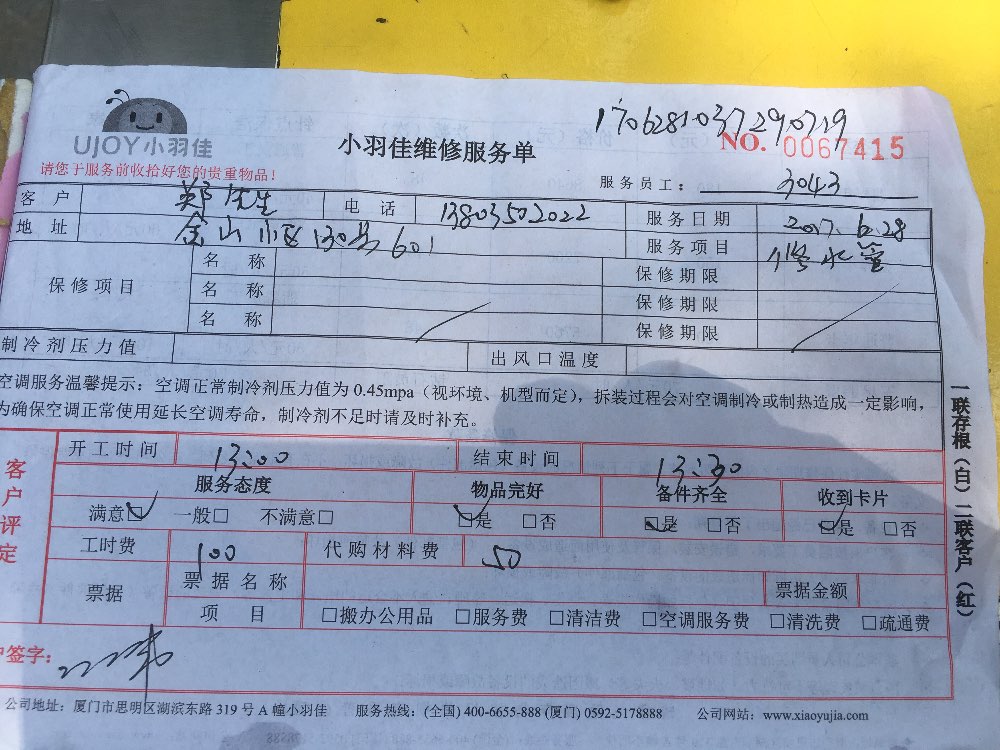 UJOY小羽佳
请您于服务前收拾好您的贵重物品!
小羽佳维修服务单
1706281037290719
NO. 0067415
服务员工: 3043
客户 郑先生 电话 13803502022 服务日期 2017.6.28
地址 金山小区130号601 服务项目 修水管
保修项目 名称 保修期限
名称 保修期限
名称 保修期限
制冷剂压力值 出风口温度
空调服务温馨提示: 空调正常制冷剂压力值为 0.45mpa(视环境、机型而定),拆装过程会对空调制冷或制热造成一定影响,
为确保空调正常使用延长空调寿命,制冷剂不足时请及时补充。
客户评定
开工时间 13:00 结束时间 13:30
服务态度 物品完好 备件齐全 收到卡片
满意☑ 一般□ 不满意□ ☑是 □否 ☑是 □否 ☑是 □否
工时费 100 代购材料费 50
票据 票据名称 票据金额
项目 □搬办公用品 □服务费 □清洁费 □空调服务费 □清洗费 □疏通费
户签字:
一联存根(白)二联客户(红)
公司地址:厦门市思明区湖滨东路 319 号 A 幢小羽佳 服务热线:(全国) 400-6655-888 (厦门) 0592-5178888 公司网站:www.xiaoyujia.com